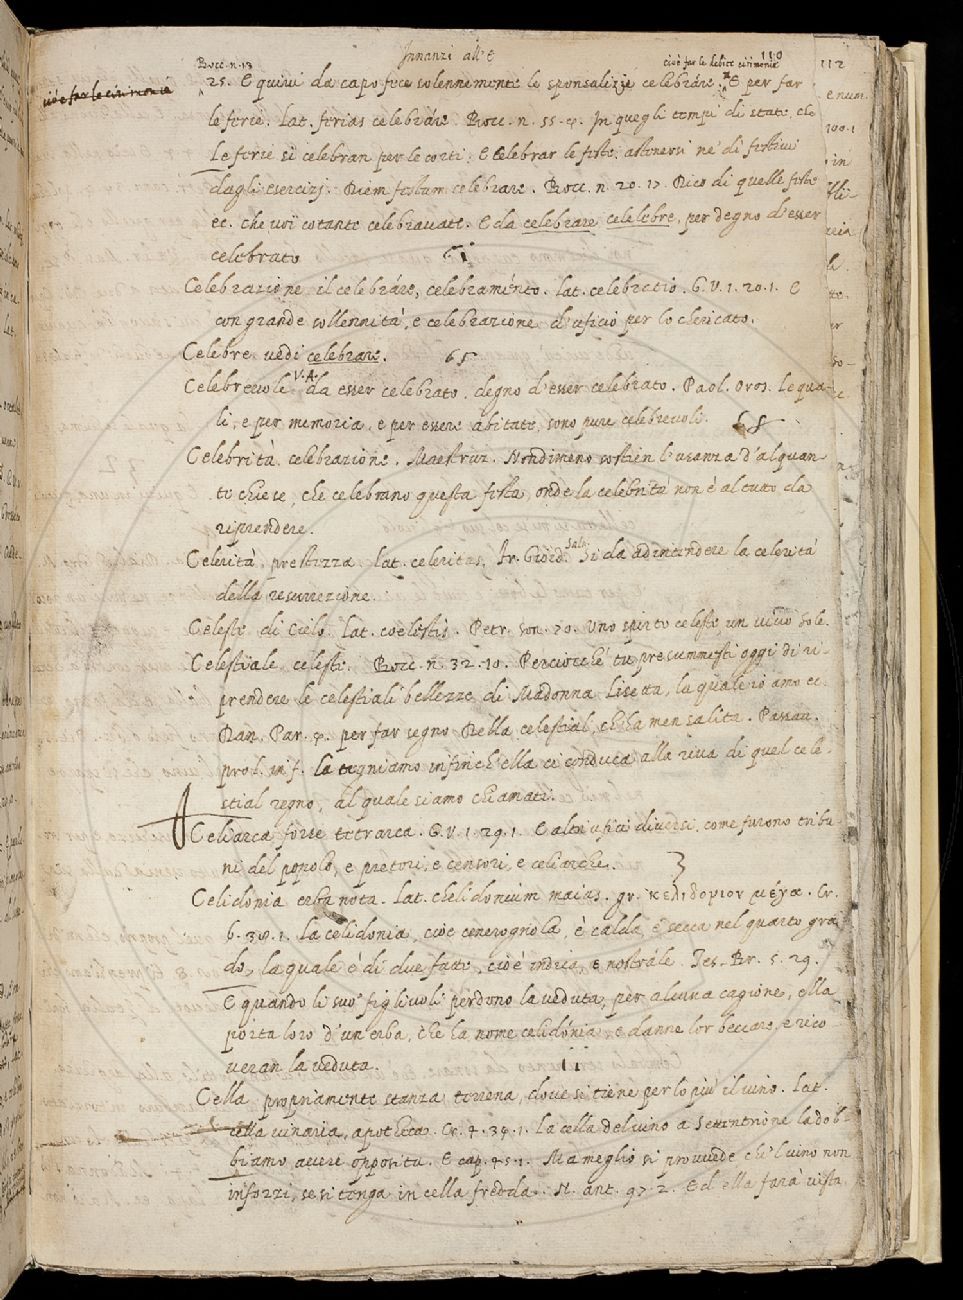 Innanzi all'E
110
Bocc. n. 13
cioè far le debite cirimonie
cioè far le cirimonie
25. E quivi da capo fece solennemente le sponsalizie celebráre. E per far
le ferie. Lat. ferias celebráre. Bocc. n. 55. 4. In quegli tempi di state, che
le ferie si celebran per le corti. E Celebrar le feste, astenersi ne' dì festivi
dagli esercizj. Diem festum celebrare. Bocc. n. 20. 17. Dico di quelle feste
ec. che voi cotante celebravate. E da celebrare celelebre, per degno d'esser
celebrato
61
Celebrazione il celebráre, celebraménto. Lat. celebratio. G. V. 1. 20. 1. E
con grande sollennità, e celebrazione d'uficio per lo chericato.
Celebre vedi celebrare. 65
Celebrevole V. A. da esser celebrato, degno d'esser celebrato. Paol. Oros. Le qua-
li, e per memoria, e per essere abitate, sono pure celebrevoli. 68
Celebrità celebrazione. Maestruz. Nondimeno sostien l'usanza d'alquan
te chiese, che celebrano questa festa, onde la celebrità non è al tutto da
riprendere.
Celerità, prestezza. Lat. celeritas. Fr. Giord. Salv. Si da ad intendere la celerità
della resurrezione.
Celeste di Cielo. Lat. coelestis. Petr. son. 70. Uno spirto celeste, un vivo sole.
Celestiale, celeste. Bocc. n. 32. 10. Perciocché tu presummesti oggi di ri-
prendere le celestiali bellezze di Madonna Lisetta, la quale io amo ec.
Dan. Par. 4. per far segno Della celestial, ch'ha men salita. Passav.
prol. inf. la tegniamo infinch'ella ci conduca alla riva di quel cele-
stial regno, al quale siamo chiamati.
Celiarca forse tetrarca. G. V. 1. 29. 1. E altri ufici diversi, come furono tribu
ni del popolo, e pretori, e censori, e celiarche. 3
Celidonia erba nota. Lat. chelidonium maius. gr. κελιδόνιον μέγα. Cr.
6. 34. 1. La celidonia, cioè cenerognola, è calda, e secca nel quarto gra
do, la quale è di due fatte, cioè indica, e nostrále. Tes. Br. 5. 29.
E quando li suo' figlivoli perdono la veduta, per alcuna cagione, ella
porta loro d'un'erba, che ha nome celidónia, e danne lor beccare, e rico
veran la veduta. 11
Cella propriamente stanza terrena, dove si tiene per lo più il vino. Lat.
cella vinaria, apotheca. Cr. 4. 34. 1. La cella del vino a Settentrione la dob-
biamo avere opposita. E cap. 45. 1. Ma meglio si provvede che 'l vino non
inforzi, se si tenga in cella fredda. N. ant. 97. 2. Ed ella farà vista
112